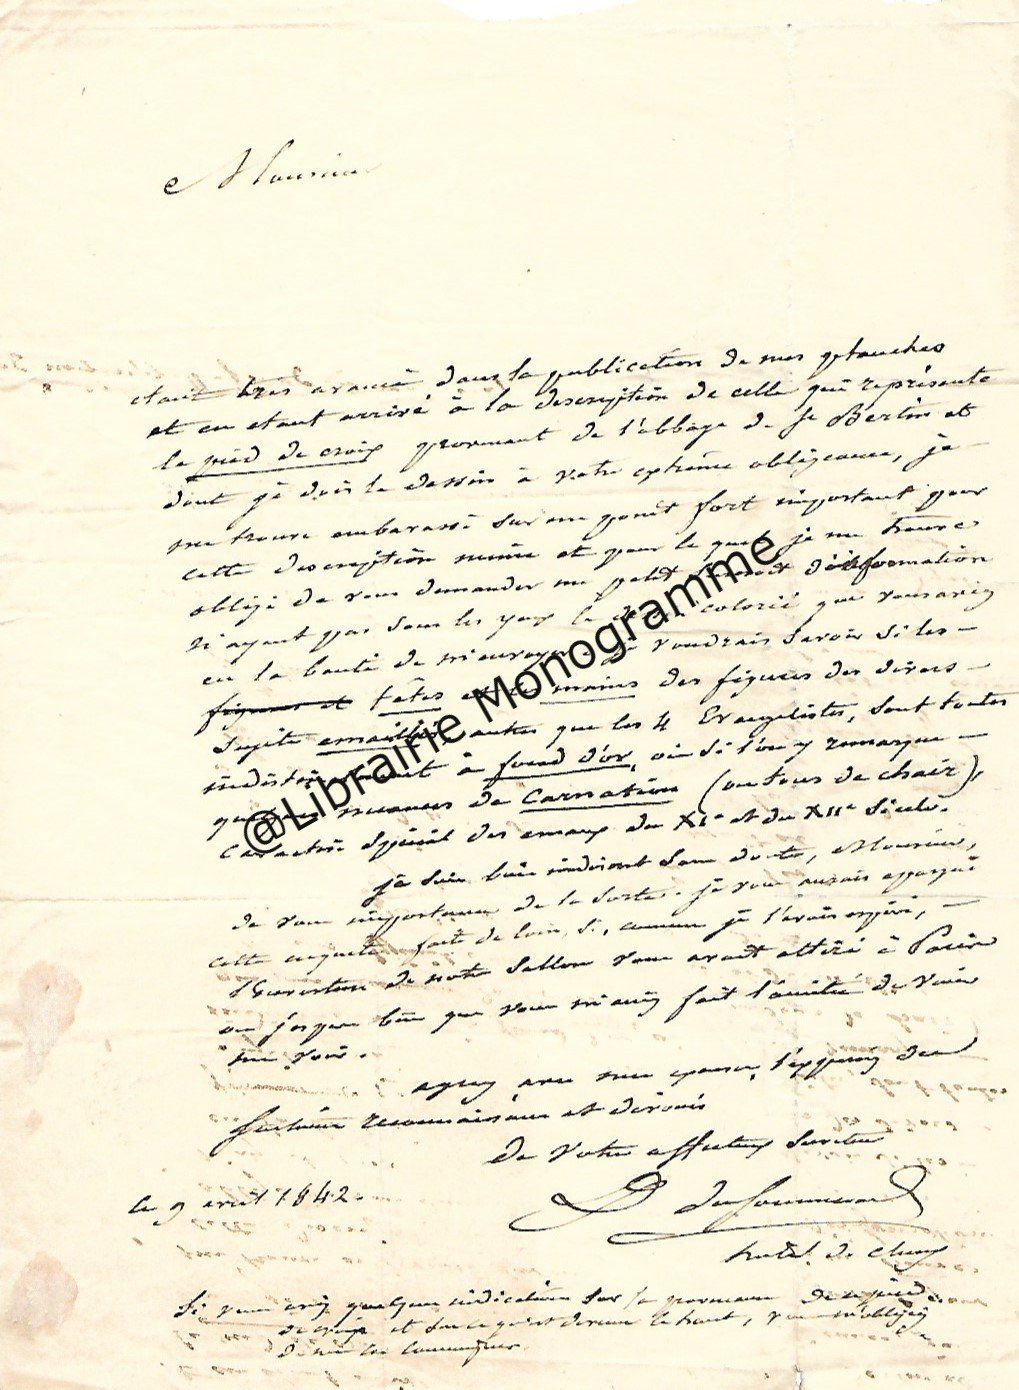 Monsieur
étant très avancé dans la publication de mes planches
et en étant arrivé à la description de celle qui représente
le pied de croix provenant de l'abbaye de St Bertin et
dont je dois le dessin à votre extrême obligeance, je
me trouve embarassé sur un point fort important pour
cette description même et pour lequel je me trouve
obligé de vous demander un petit d'information
n'ayant pas sous les yeux le colorié que vous aviez
eu la bonté de m'envoyer. Je voudrais savoir si les
figures et têtes et les mains des figures des divers
sujets émaillés autres que les 4 Evangelistes, sont toutes
indistinctement à fond d'or, où si l'on y remarque
quelques nuances de Carnation (ou tons de chair),
caractère spécial des emaux du XIe et du XIIe Siècle.
je suis bien indiscret sans doute, Monsieur,
de vous importuner de la sorte. je vous aurais épargné
cette enquête faite de loin, si, comme je l'avais espéré,
l'Ouverture de notre Sallon vous avait attiré à Paris
ou jusqu'en que vous m'aviez fait l'amitié de venir
me voir.
agréez avec mes excuses, l'expression des
sentimens reconnaissans et dévoués
de votre affectueux serviteur
D du Sommerard
hotel de Cluny
Ce 9 avril 1842.
Si vous avez quelque indication sur la provenance de ce pied
de croix et sur ce qu'est devenu le haut, vous m'obligerez
de me les communiquer
@Librairie Monogramme